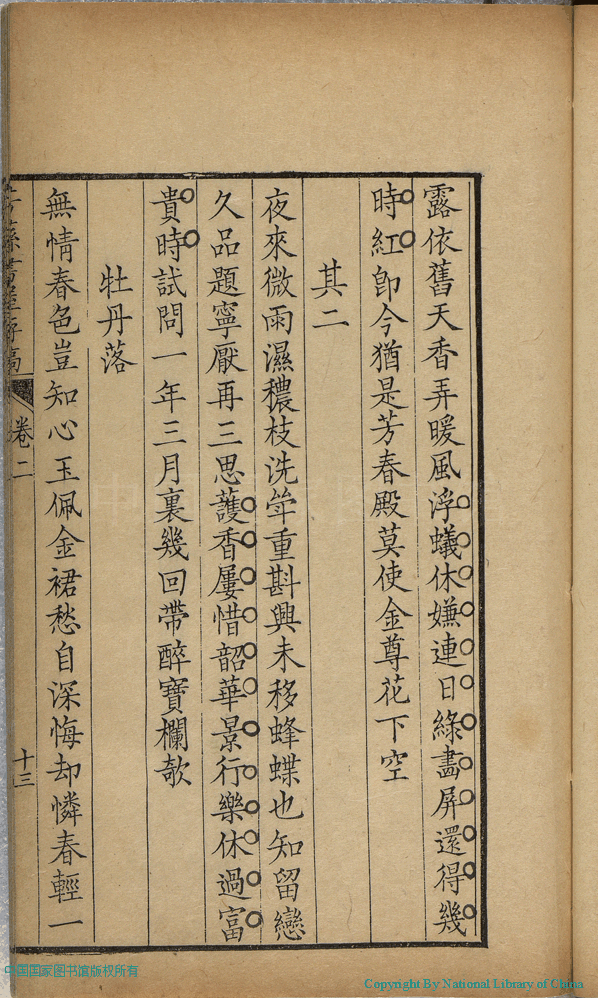 露依舊天香弄暖風浮蟻休嫌連日綠畵屏還得幾
時紅卽今猶是芳春殿莫使金尊花下空
其二
夜來微雨濕穠枝洗斚重斟興未移蜂蝶也知留戀
久品題寧厭再三思護香屢惜韶華景行樂休過富
貴時試問一年三月裏幾回帶醉寶欄欹
牡丹落
無情春色豈知心玉佩金裙愁自深悔却憐春輕一
卷二
十三
中国国家图书馆版权所有
Copyright By National Library of China